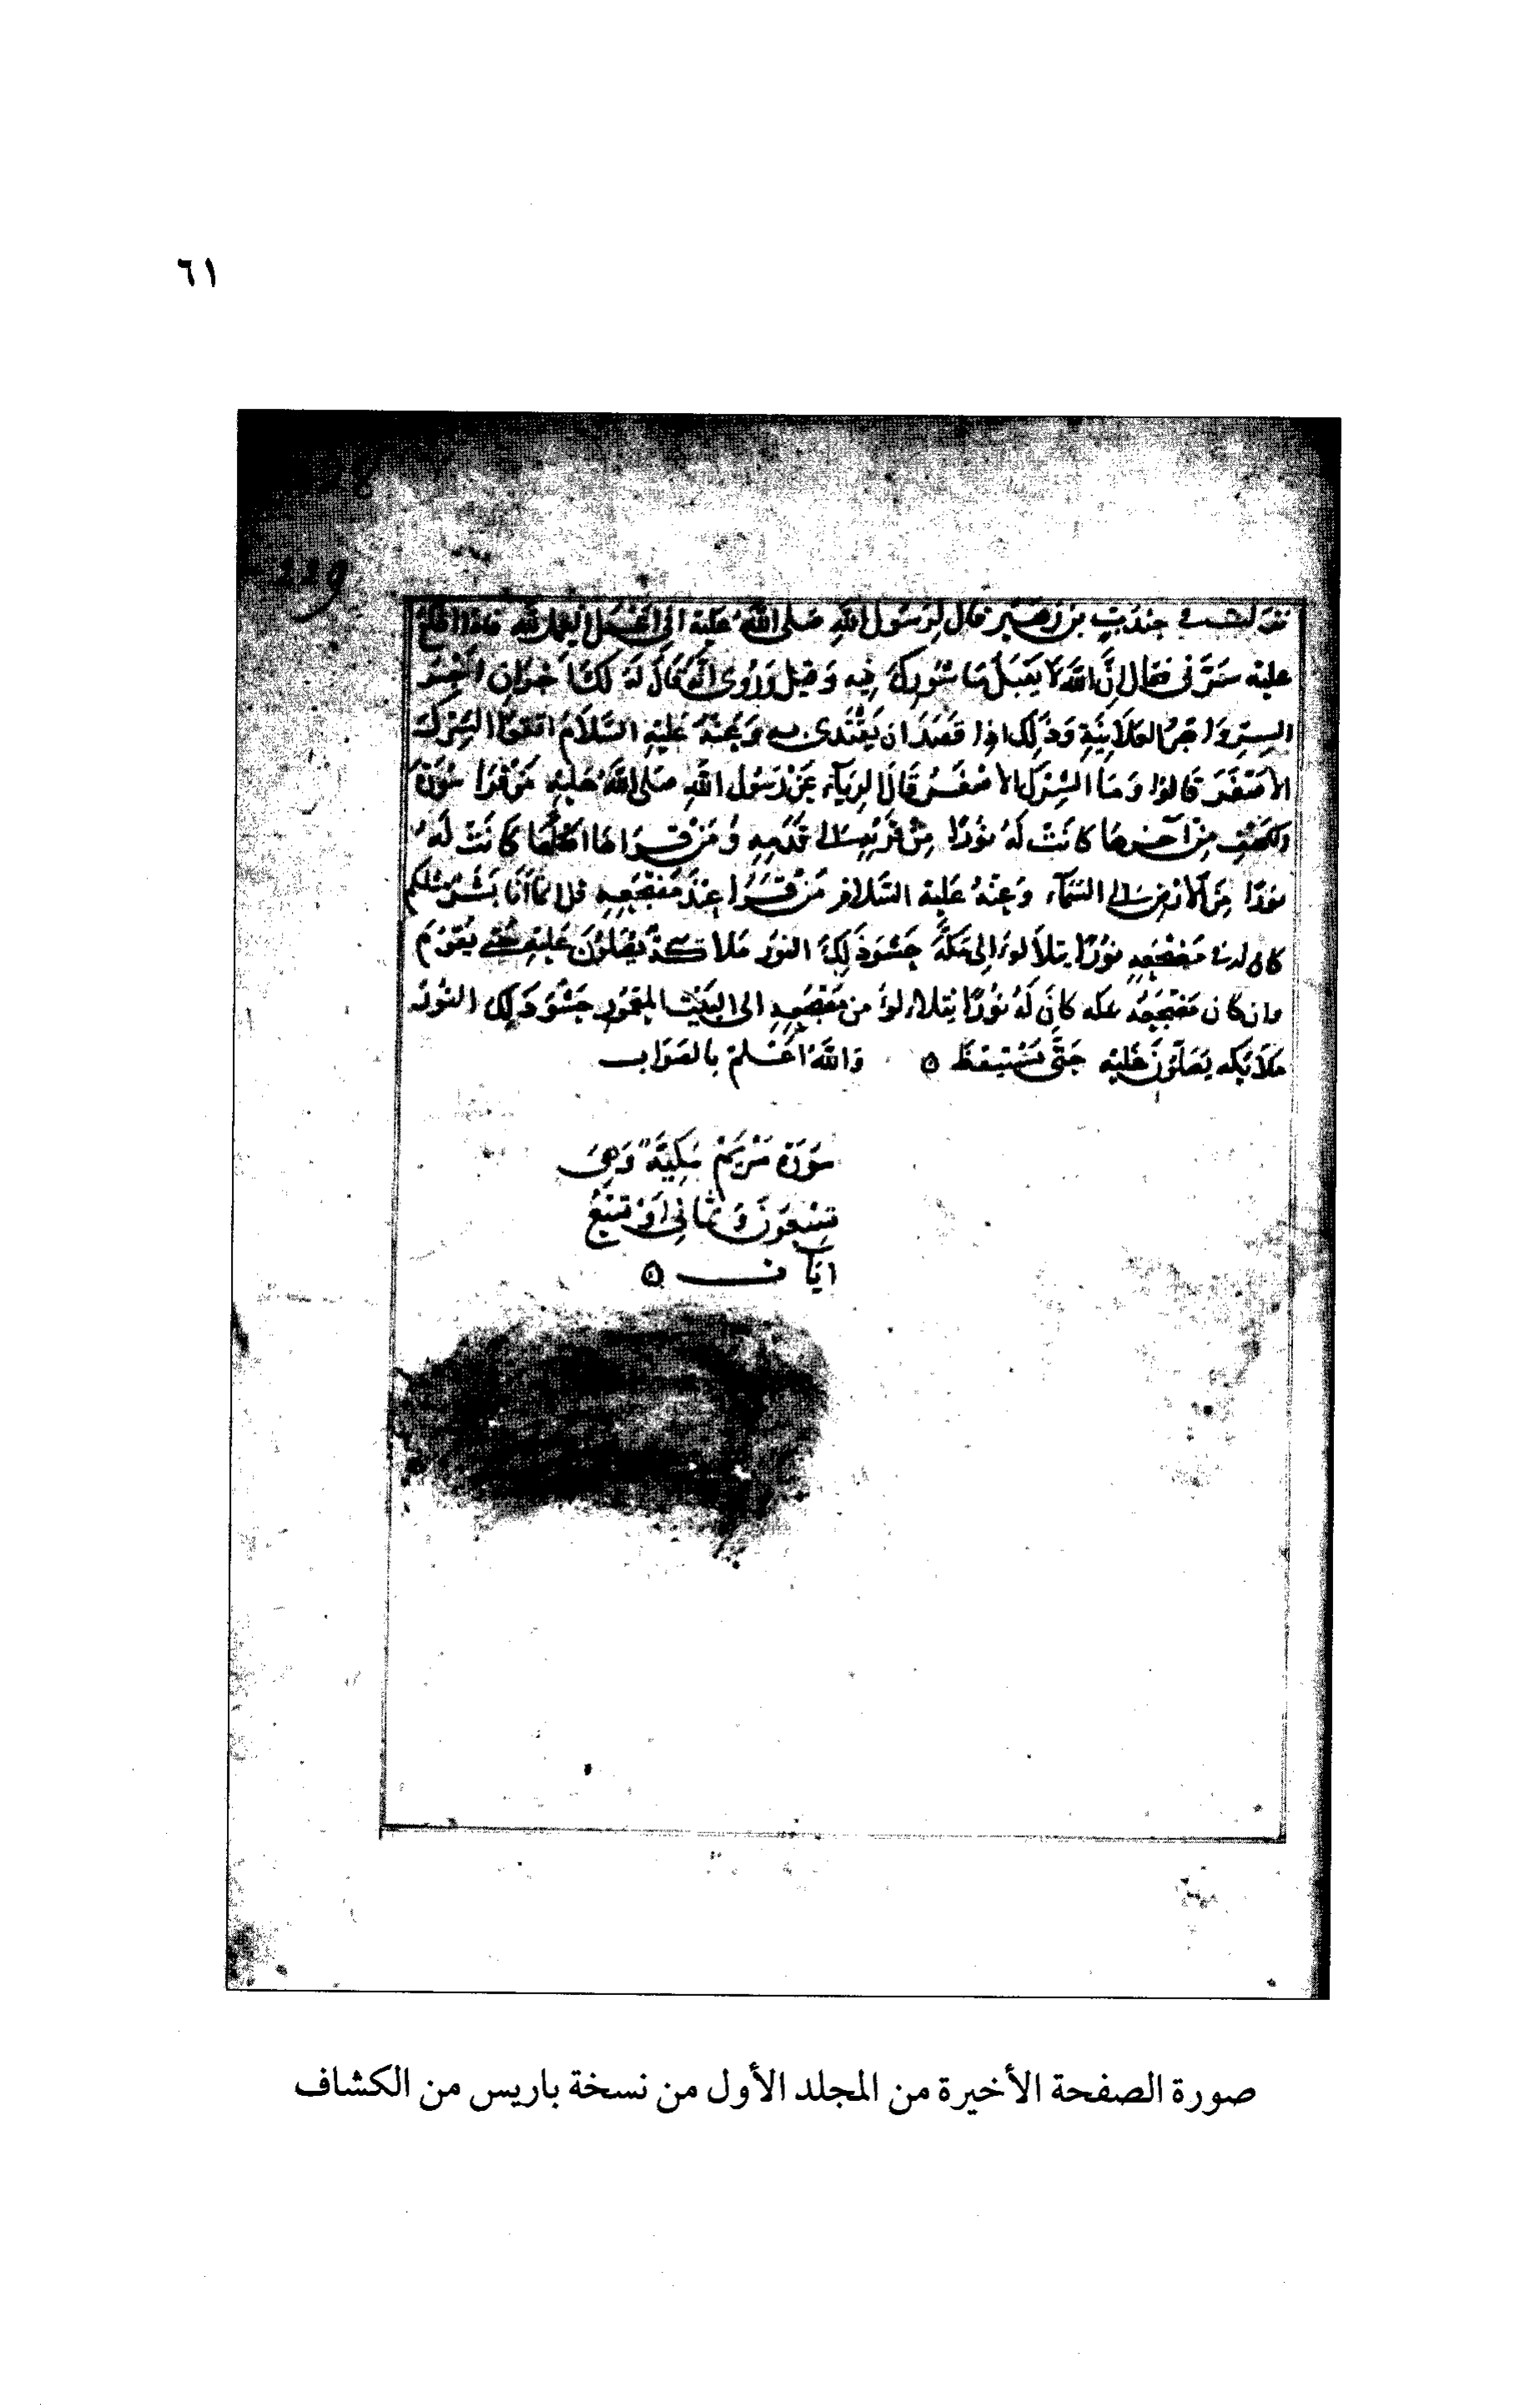 ٦١
جندب بن زهير قال لرسول الله صلى الله عليه اني اعمل العمل لله فاذا اطلع
عليه سرني فقال ان الله لا يقبل ما شورك فيه وقيل وروى انه قال له لك اجران اجر
السر واجر العلانية وذلك اذا قصد ان يقتدى به وعنه عليه السلام اتقوا الشرك
الاصغر قالوا وما الشرك الاصغر قال الرياء عن رسول الله صلى الله عليه من قرا سورة
الكهف من آخرها كانت له نورا من قرنه الى قدمه ومن قراها كلها كانت له
نورا من الارض الى السماء وعنه عليه السلام من قرا عند مضجعه قل انما أنا بشر مثلكم
كان له مضجعه نورا يتلألو الى مكة حشو ذلك النور ملائكة يصلون عليه حتى يقوم
وان كان مضجعه بمكه كان له نورا يتلالو من مضجعه الى البيت المعمور حشو ذلك النور
ملايكه يصلون عليه حتى يستيقظ ٥ والله اعلم بالصواب
سورة مريم مكية وهى
تسعون وثمانى او تسع
ايات ٥
صورة الصفحة الأخيرة من المجلد الأول من نسخة باريس من الكشاف